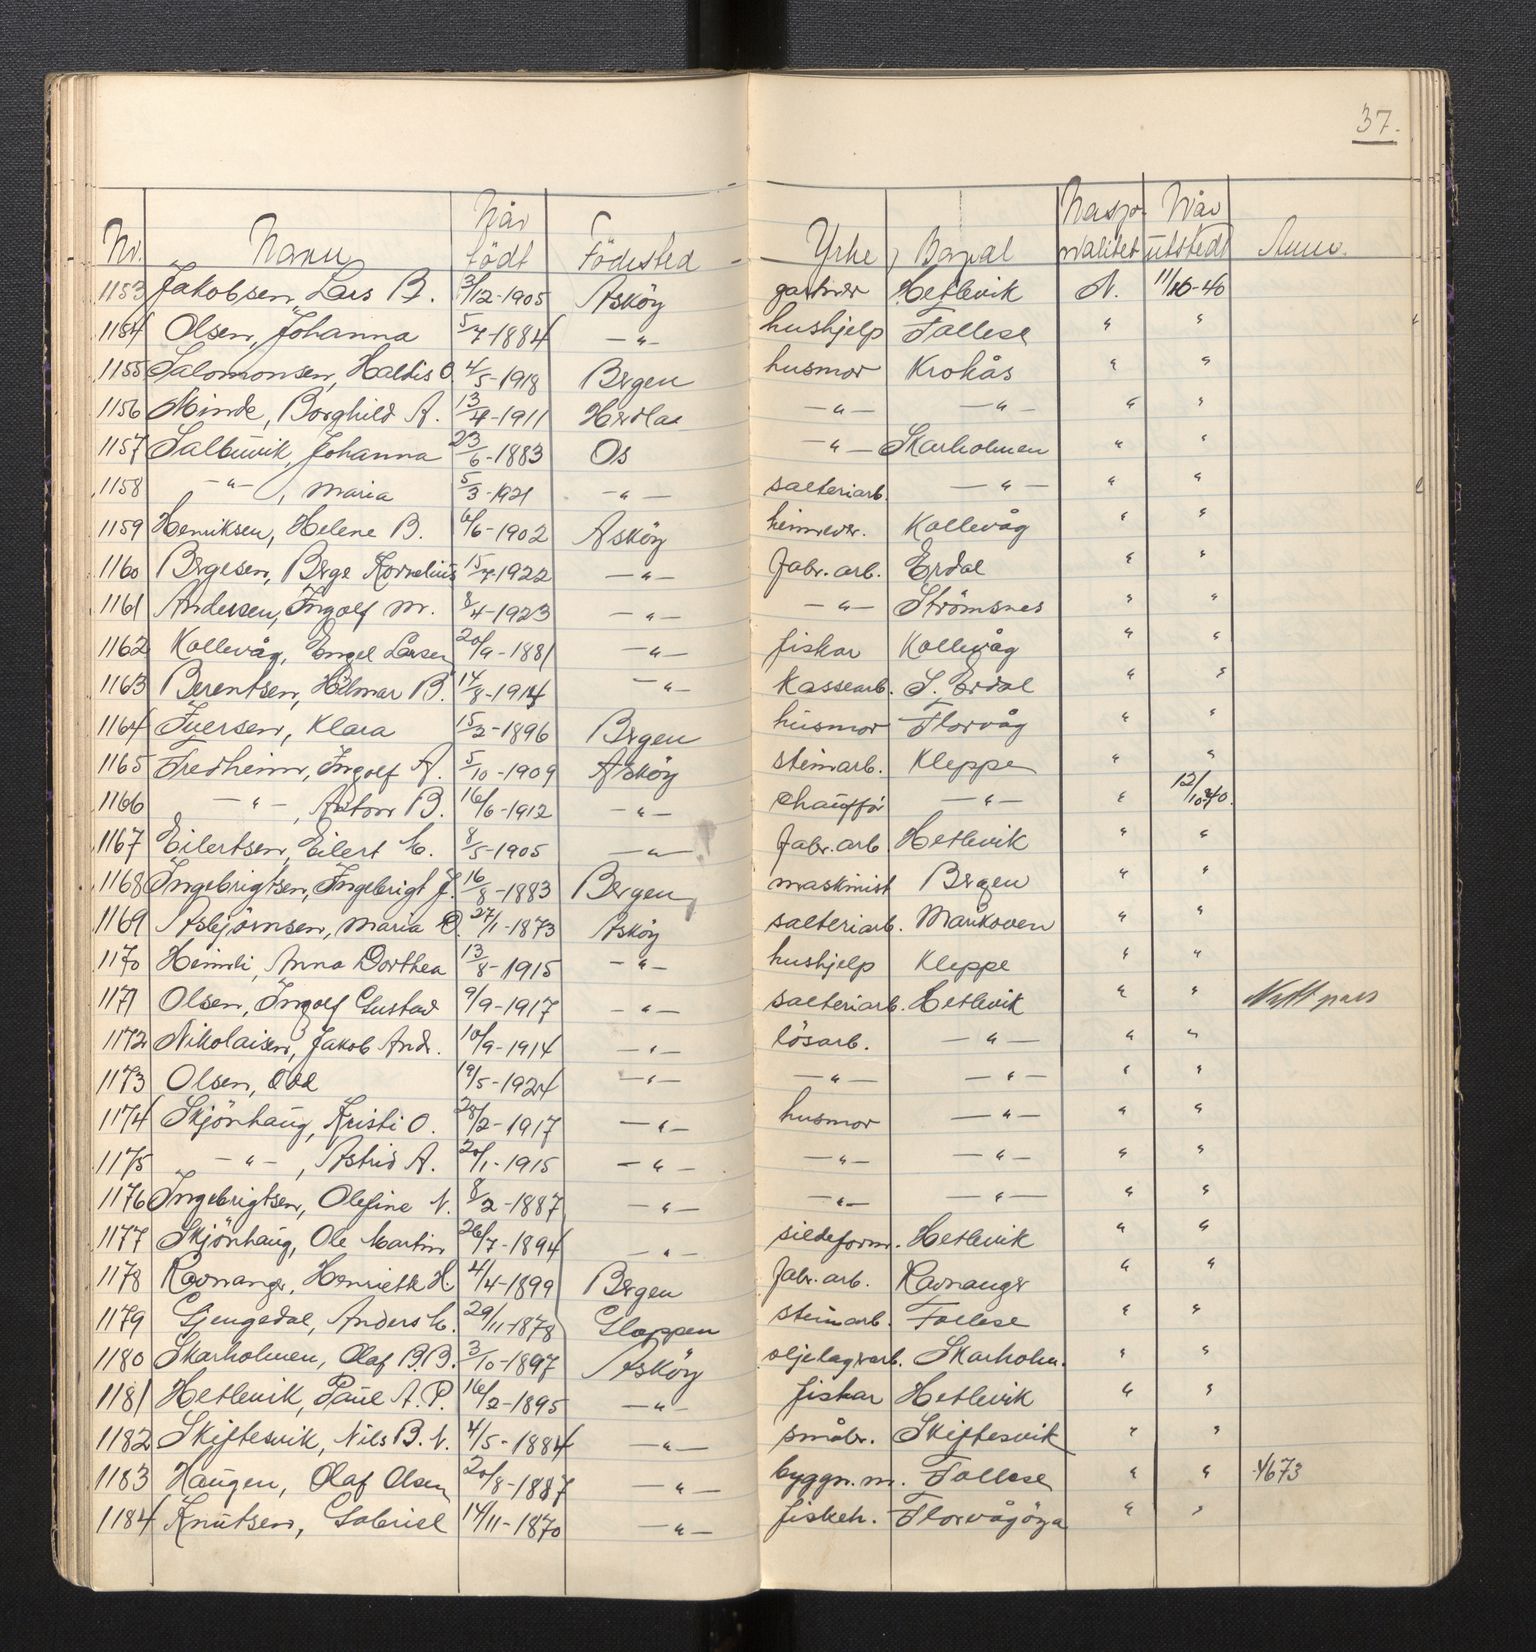 37.
Nr. Navn Når födt Födested Yrke Bopal Nasjonalitet Når utstedt Anm.
1153 Jakobsen, Lars B. 3/12-1905 Asköy gartner Hetlevik N. 11/10-40
1154 Olsen, Johanna 5/7-1884 —"— hushjelp Follese " "
1155 Salomonsen, Haldis O. 4/5-1918 Bergen husmor Krokås " "
1156 Minde, Borghild A. 13/4-1911 Herdla —"— —"— " "
1157 Salbuvik, Johanna 23/6-1883 Os —"— Skarholmen " "
1158 —"—, Maria 5/3-1921 —"— salteriarb. —"— " "
1159 Henriksen, Helene B. 6/6-1902 Asköy heimever. Kollevåg " "
1160 Bergesen, Berge Kornelius 15/7-1922 —"— fabr. arb. Erdal " "
1161 Andersen, Ingolf M. 8/4-1923 —"— —"— Strömsnes " "
1162 Kollevåg, Engel Larsen 20/9-1881 —"— fiskar Kollevåg " "
1163 Berentsen, Hilmar B. 14/8-1914 —"— kassearb. S. Erdal " "
1164 Iversen, Klara 15/2-1896 Bergen husmor Florvåg " "
1165 Fredheim, Ingolf A. 5/10-1909 Asköy steinarb. Kleppe " "
1166 —"—, Astor B. 16/6-1912 —"— chaufför —"— " 12/10-40.
1167 Eilertsen, Eilert M. 8/5-1905 —"— fabr. arb Hetlevik " "
1168 Ingebrigtsen, Ingebrigt J. 16/8-1883 Bergen maskinist Bergen " "
1169 Asbjörnsen, Maria O. 27/1-1873 Asköy salteriarb. Marikoven " "
1170 Heimli, Anna Dorthea 13/8-1915 —"— hushjelp Kleppe " "
1171 Olsen, Ingolf Gustav 9/9-1917 —"— salteriarb. Hetlevik " " Nytt pass
1172 Nikolaisen, Jakob Andr. 10/9-1914 —"— lösarb. —"— " "
1173 Olsen, Odd 19/5-1924 —"— —"— —"— " "
1174 Skjönhaug, Kristi O. 28/2-1917 —"— husmor —"— " "
1175 —"—, Astrid A. 20/1-1915 —"— —"— —"— " "
1176 Ingebrigtsen, Olefine N. 8/2-1887 —"— —"— —"— " "
1177 Skjönhaug, Ole Martin 26/7-1894 —"— sildeform. Hetlevik " "
1178 Ravnanger, Henriette H. 4/4-1899 Bergen fabr. arb. Ravnanger " "
1179 Gjengedal, Anders M. 29/11-1878 Gloppen steinarb. Follese " "
1180 Skarholmen, Olaf B.B. 3/10-1897 Asköy oljelagerarb. Skarholm. " "
1181 Hetlevik, Paul A. P. 16/2-1895 —"— fiskar Hetlevik " "
1182 Skiftesvik, Nils B. N. 4/5-1884 —"— småbr. Skiftesvik " "
1183 Haugen, Olaf Olsen 20/8-1887 —"— byggn. m. Follese " " 4673
1184 Knutsen, Gabriel 14/11-1870 —"— fiskeh. Florvågöya " "